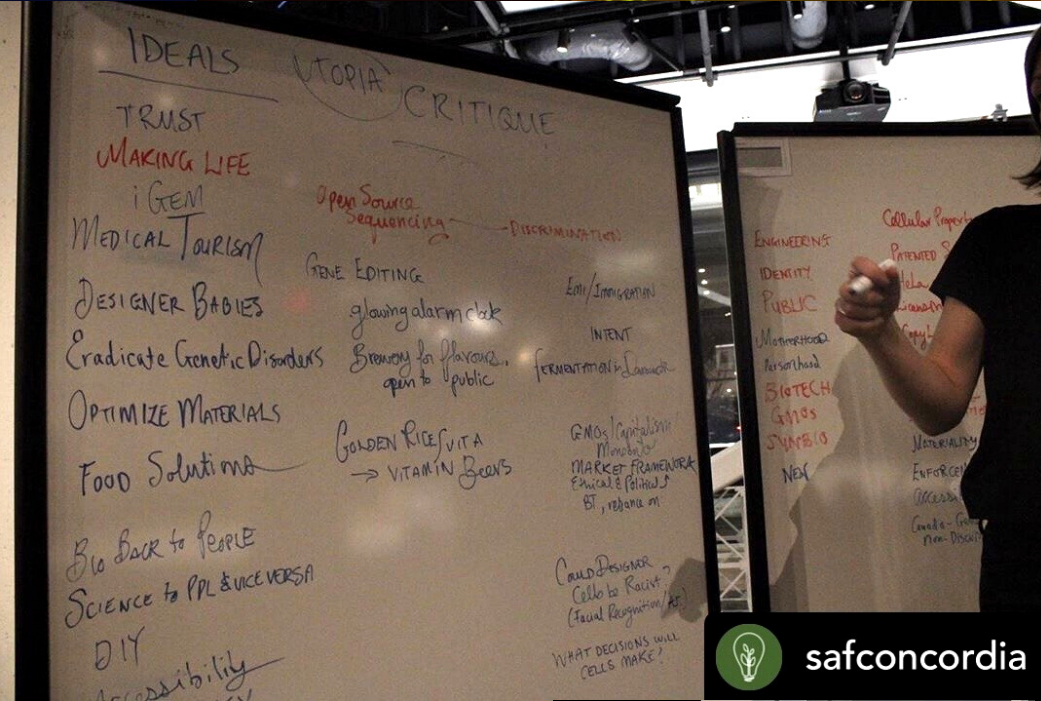 IDEALS
UTOPIA
CRITIQUE
TRUST
MAKING LIFE
iGEM
MEDICAL TOURISM
DESIGNER BABIES
Eradicate Genetic Disorders
OPTIMIZE MATERIALS
FOOD Solutions
Bio BACK to PEOPLE
SCIENCE to PPL & VICE VERSA
DIY
Accessibility
Open Source
Sequencing
GENE EDITING
glowing alarm clock
Brewery for flavours,
open to public
GOLDEN RICE/VITA
→ VITAMIN BEERS
DISCRIMINATION
/IMMIGRATION
INTENT
FERMENTATION &
GMOs/Capitalism
MARKET FRAMEWORK
Ethical & Political
BT, reliance on
COULD DESIGNER
Cells be Racist?
(Facial Recognition/
WHAT DECISIONS WILL
CELLS MAKE?
ENGINEERING
IDENTITY
PUBLIC
MOTHERHOOD
Personhood
BIOTECH
GMOs
SYNBIO
NEW
Cellular
PATENTED
HeLa
MATERIALITY
safconcordia